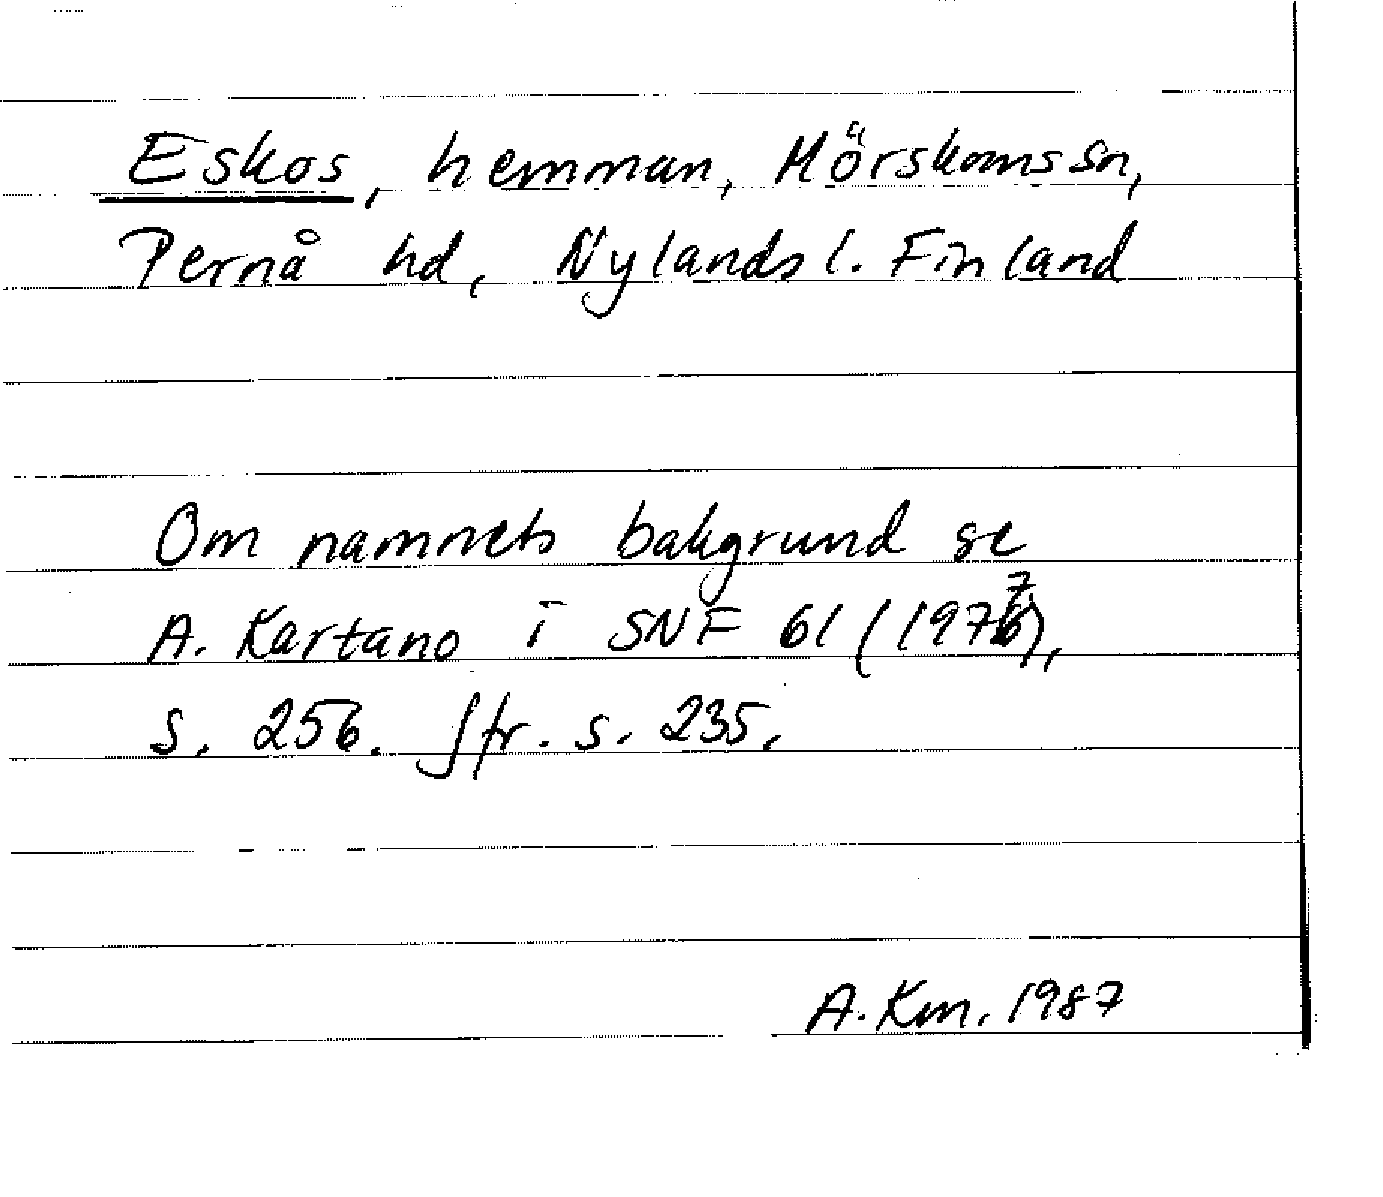 Eskos, hemman, Mörskoms sn,
Pernå hd, Nylands l. Finland
Om namnets bakgrund se
A. Kartano i SNF 61 (1977),
s. 256. Jfr. s. 235.
A. Km. 1987